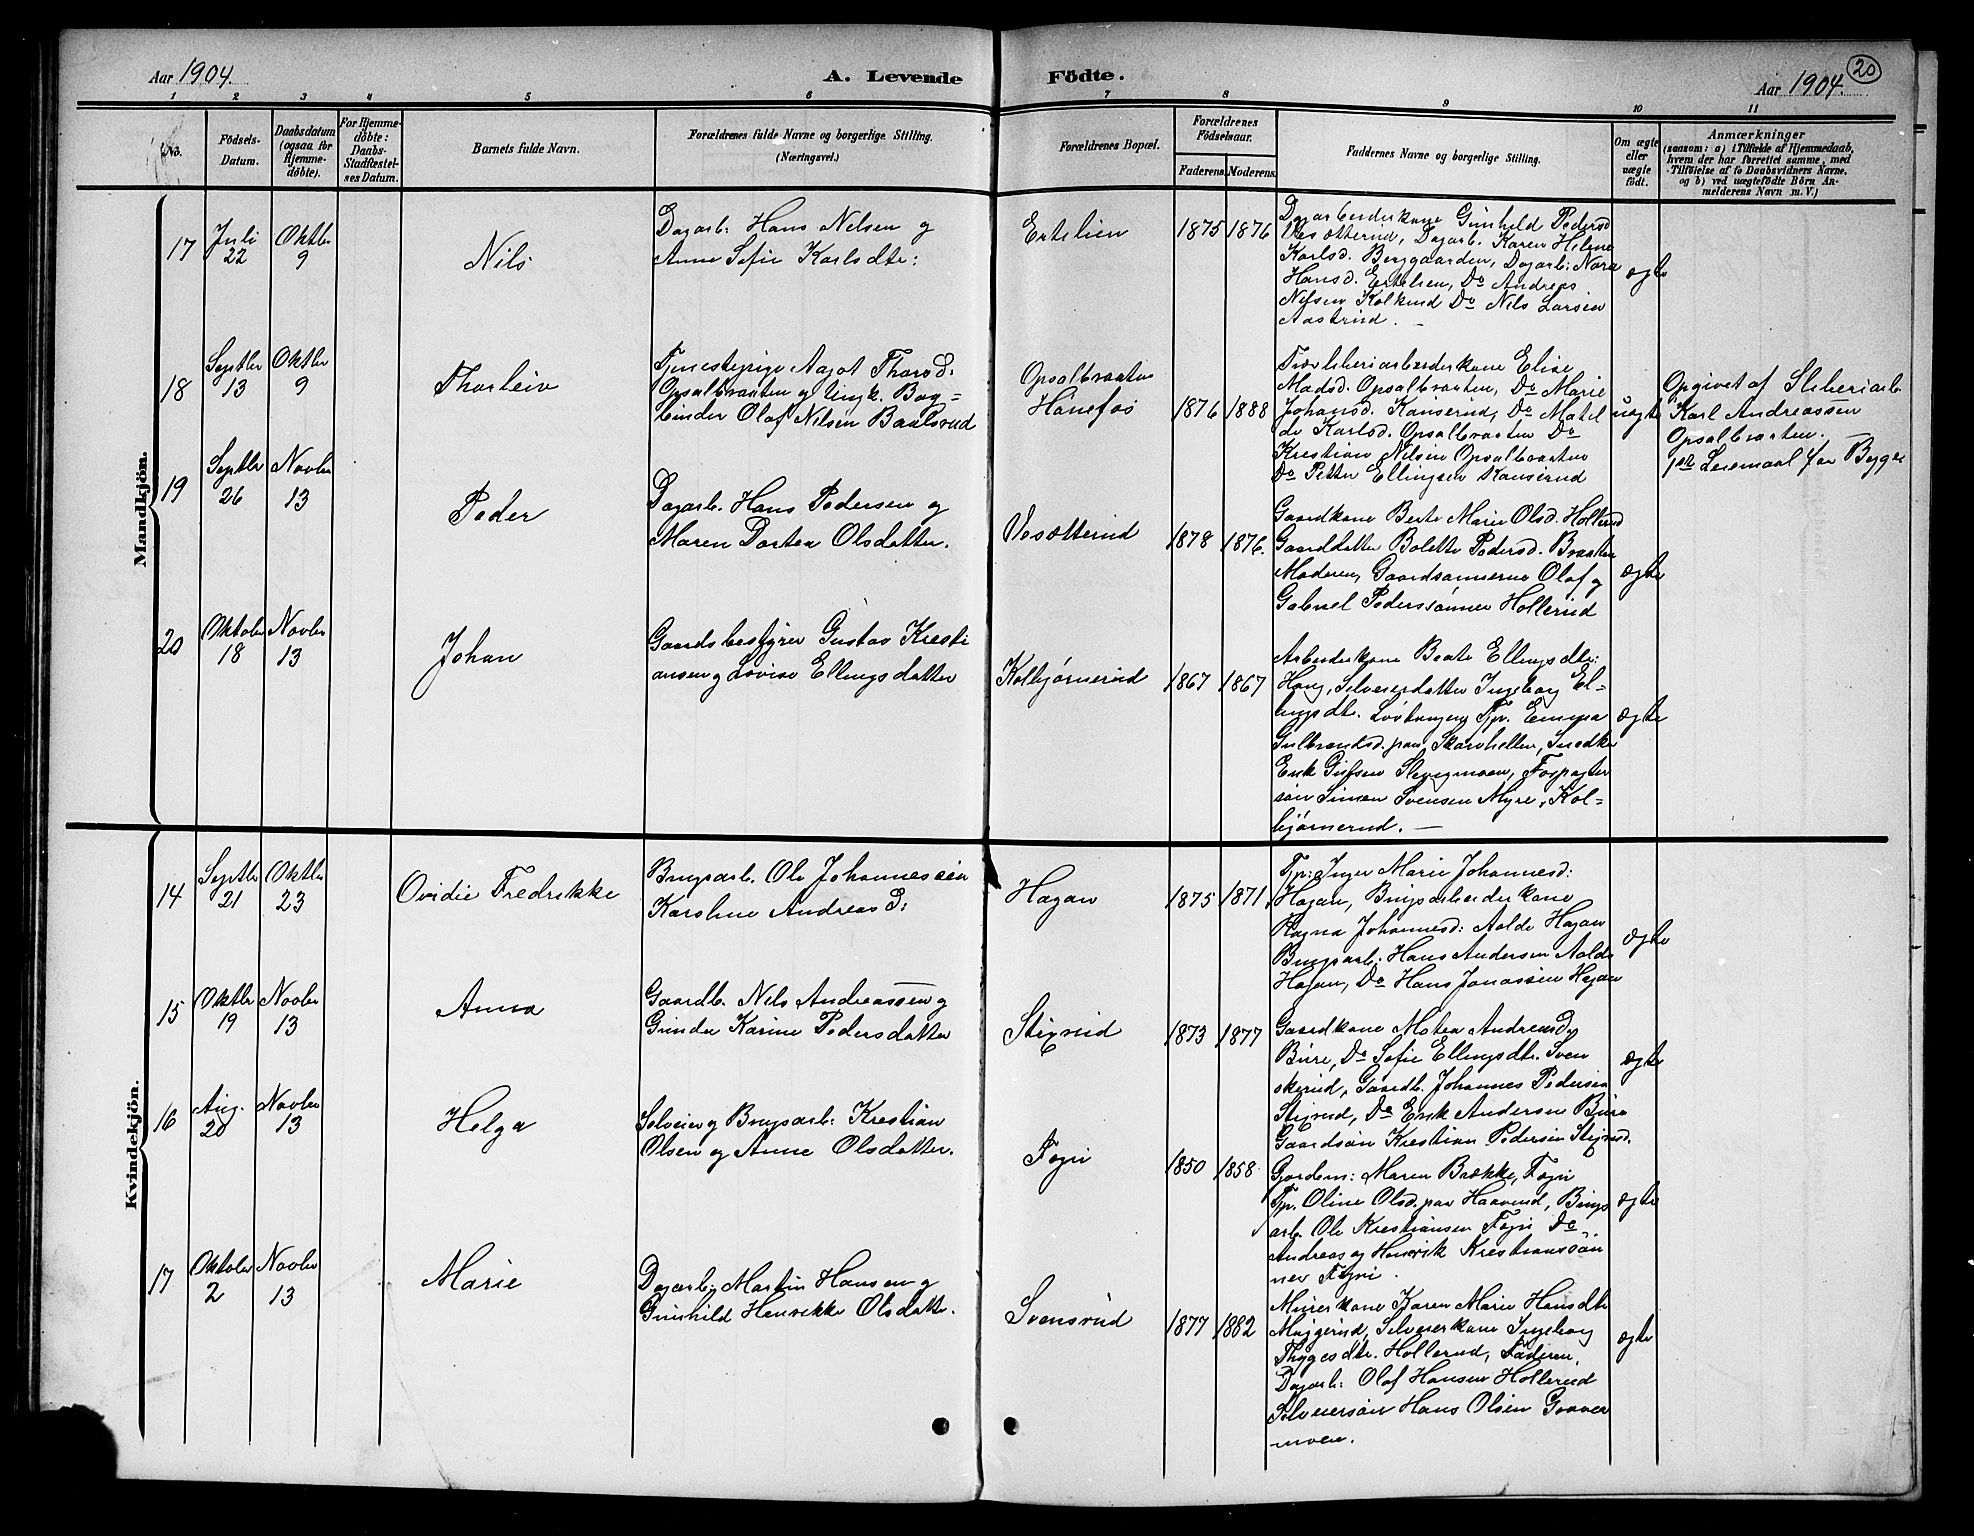 Aar 1904.
A. Levende Födte.
Aar 1904. 20
1 2 3 4 5 6 7 8 9 10 11
No.
Födsels-Datum.
Daabsdatum (ogsaa for Hjemmedöbte).
For Hjemmedöbte: Daabs-Stadfæstelses Datum.
Barnets fulde Navn.
Forældrenes fulde Navne og borgerlige Stilling. (Næringsvei.)
Forældrenes Bopæl.
Forældrenes Födselsaar.
Faderens. Moderens.
Faddernes Navne og borgerlige Stilling.
Om ægte eller uægte födt.
Anmærkninger
(saasom: a) i Tilfælde af Hjemmedaab, hvem der har forrettet samme, med Tilföielse af to Daabsvidners Navne, og b) ved uægtefödte Börn Anmelderens Navn m. V.)
Mandkjön.
17
Juli 22
Oktbr 9
Nils
Dagarb: Hans Nelsen og
Anne Sofie Karlsdtr:
Ertelien
1875 1876
Dagarbeiderkone Gunhild Pedersd
Vesætterud, Dagarb. Karen Helene
Karlsd. Berggaarden, Dagarb: Nora
Hansd. Ertelien, Do Andreas
Nilsen Kolkind Do Nils Larsen
Aastrud. -
ægte
18
Septbr 13
Oktbr 9
Thorleiv
Tjenestepige Aagot Thorsd:
Opsalbraaten og Ungk. Bog=
binder Olaf Nilsen Baalsrud
Opsalbraaten
Hønefos
1876 1888
Træsliberiarbeiderkone Elise
Madsd. Opsalbraaten, Do Marie
Johansd. Kanserud, Do Matil
de Karlsd. Opsalbraaten Do
Krestian Nilsen Opsalbraaten
Do Petter Ellingsen Kanserud
uægte
Opgivet af Sliberiarb
Karl Andreassen
Opsalbraaten.
1ste Leiermaal for Begge
19
Septbr 26
Novbr 13
Peder
Dagarb. Hans Pedersen og
Maren Dortea Olsdatter.
Vesætterud
1878 1876.
Gaardkone Berte Marie Olsd. Hollerud
Gaarddatter Bolette Pedersd. Braaten
Moderen, Gaardsønnerne Olaf og
Gabriel Pederssønner Hollerud
ægte
20
Oktober 18
Novbr 13
Johan
Gaardsbestyrer Gustav Kresti
ansen og Lovise Ellingsdatter
Kolbjørnerud
1867 1867
Arbeiderkone Beate Ellingsdtr:
Haug, Selveierdatter Ingeborg El=
lingsdtr. Løvhaugen, Tjp. Emma
Gulbrandsd. paa Skarohellen, Snedker
Erik Gulsen Slevigmoen, Forpagter
søn Simen Svensen Myre, Kol=
bjørnerud. -
ægte
Kvindekjön.
14
Septbr 21
Oktbr 23
Ovidie Fredrikke
Brugsarb. Ole Johannessen
Karoline Andreas D:
Hagan
1875 1871,
Tjp: Inger Marie Johannesd:
Hagan, Brugsarbeiderkone
Ragna Johannesd: Aalde Hagan
Brugsarb: Hans Andersen Aalde
Hagan, Do Hans Jonassen Hagan
ægte
15
Oktbr 19
Novbr 13
Anna
Gaardb. Nils Andreassen og
Gunder Karine Pedersdatter
Stixrud
1873 1877
Gaardkone Matea Andreasd
Bure, Do Sofie Ellingsdtr. Sven
skerud, Gaardb. Johannes Pedersen
Stixrud, Do Erik Andersen Bure
Gaardsøn Krestian Pedersen Stixrud.
ægte
16
Aug. 20
Novbr 13
Helga
Selveier og Brugsarb: Krestian
Olsen og Anne Olsdatter.
Fogn
1850 1858
Gjordem: Maren Brække, Fogn
Tjp. Oline Olsd. paa Haavrud, Brugs
arb. Ole Krestiansen Fogn Do
Andreas og Henrik Krestianssøn
ner Fogn.
ægte
17
Oktober 2
Novbr 13
Marie
Dagarb: Martin Hansen og
Gunhild Henrikke Olsdatter.
Svensrud
1877 1882
Murerkone Karen Marie Hansdtr
Moigerud, Selveierkone Ingeborg
Thygesdtr. Hollerud, Faderen,
Dagarb: Olaf Hansen Hollerud
Selveiersøn Hans Olsen Graaver
moen.
ægte